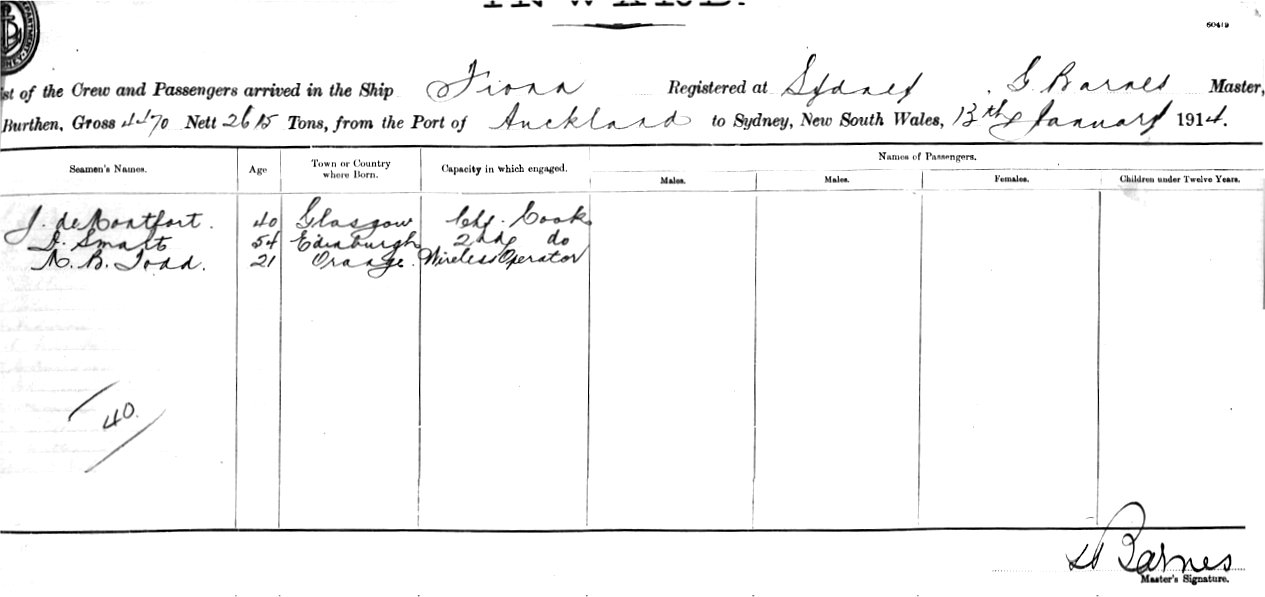 INWARD.
60419
ist of the Crew and Passengers arrived in the Ship Fiona Registered at Sydney . G. Barnes Master,
Burthen, Gross Nett 2615 Tons, from the Port of Auckland to Sydney, New South Wales, 13th January 1914.
Names of Passengers.
Seamen's Names. Age Town or Country where Born. Capacity in which engaged. Males. Males. Females. Children under Twelve Years.
J. de Montfort. 40 Glasgow Chf. Cook
Smart 54 Edinburgh 2nd do
B. Todd. 21 Orange. Wireless Operator
40.
Barnes
Master's Signature.